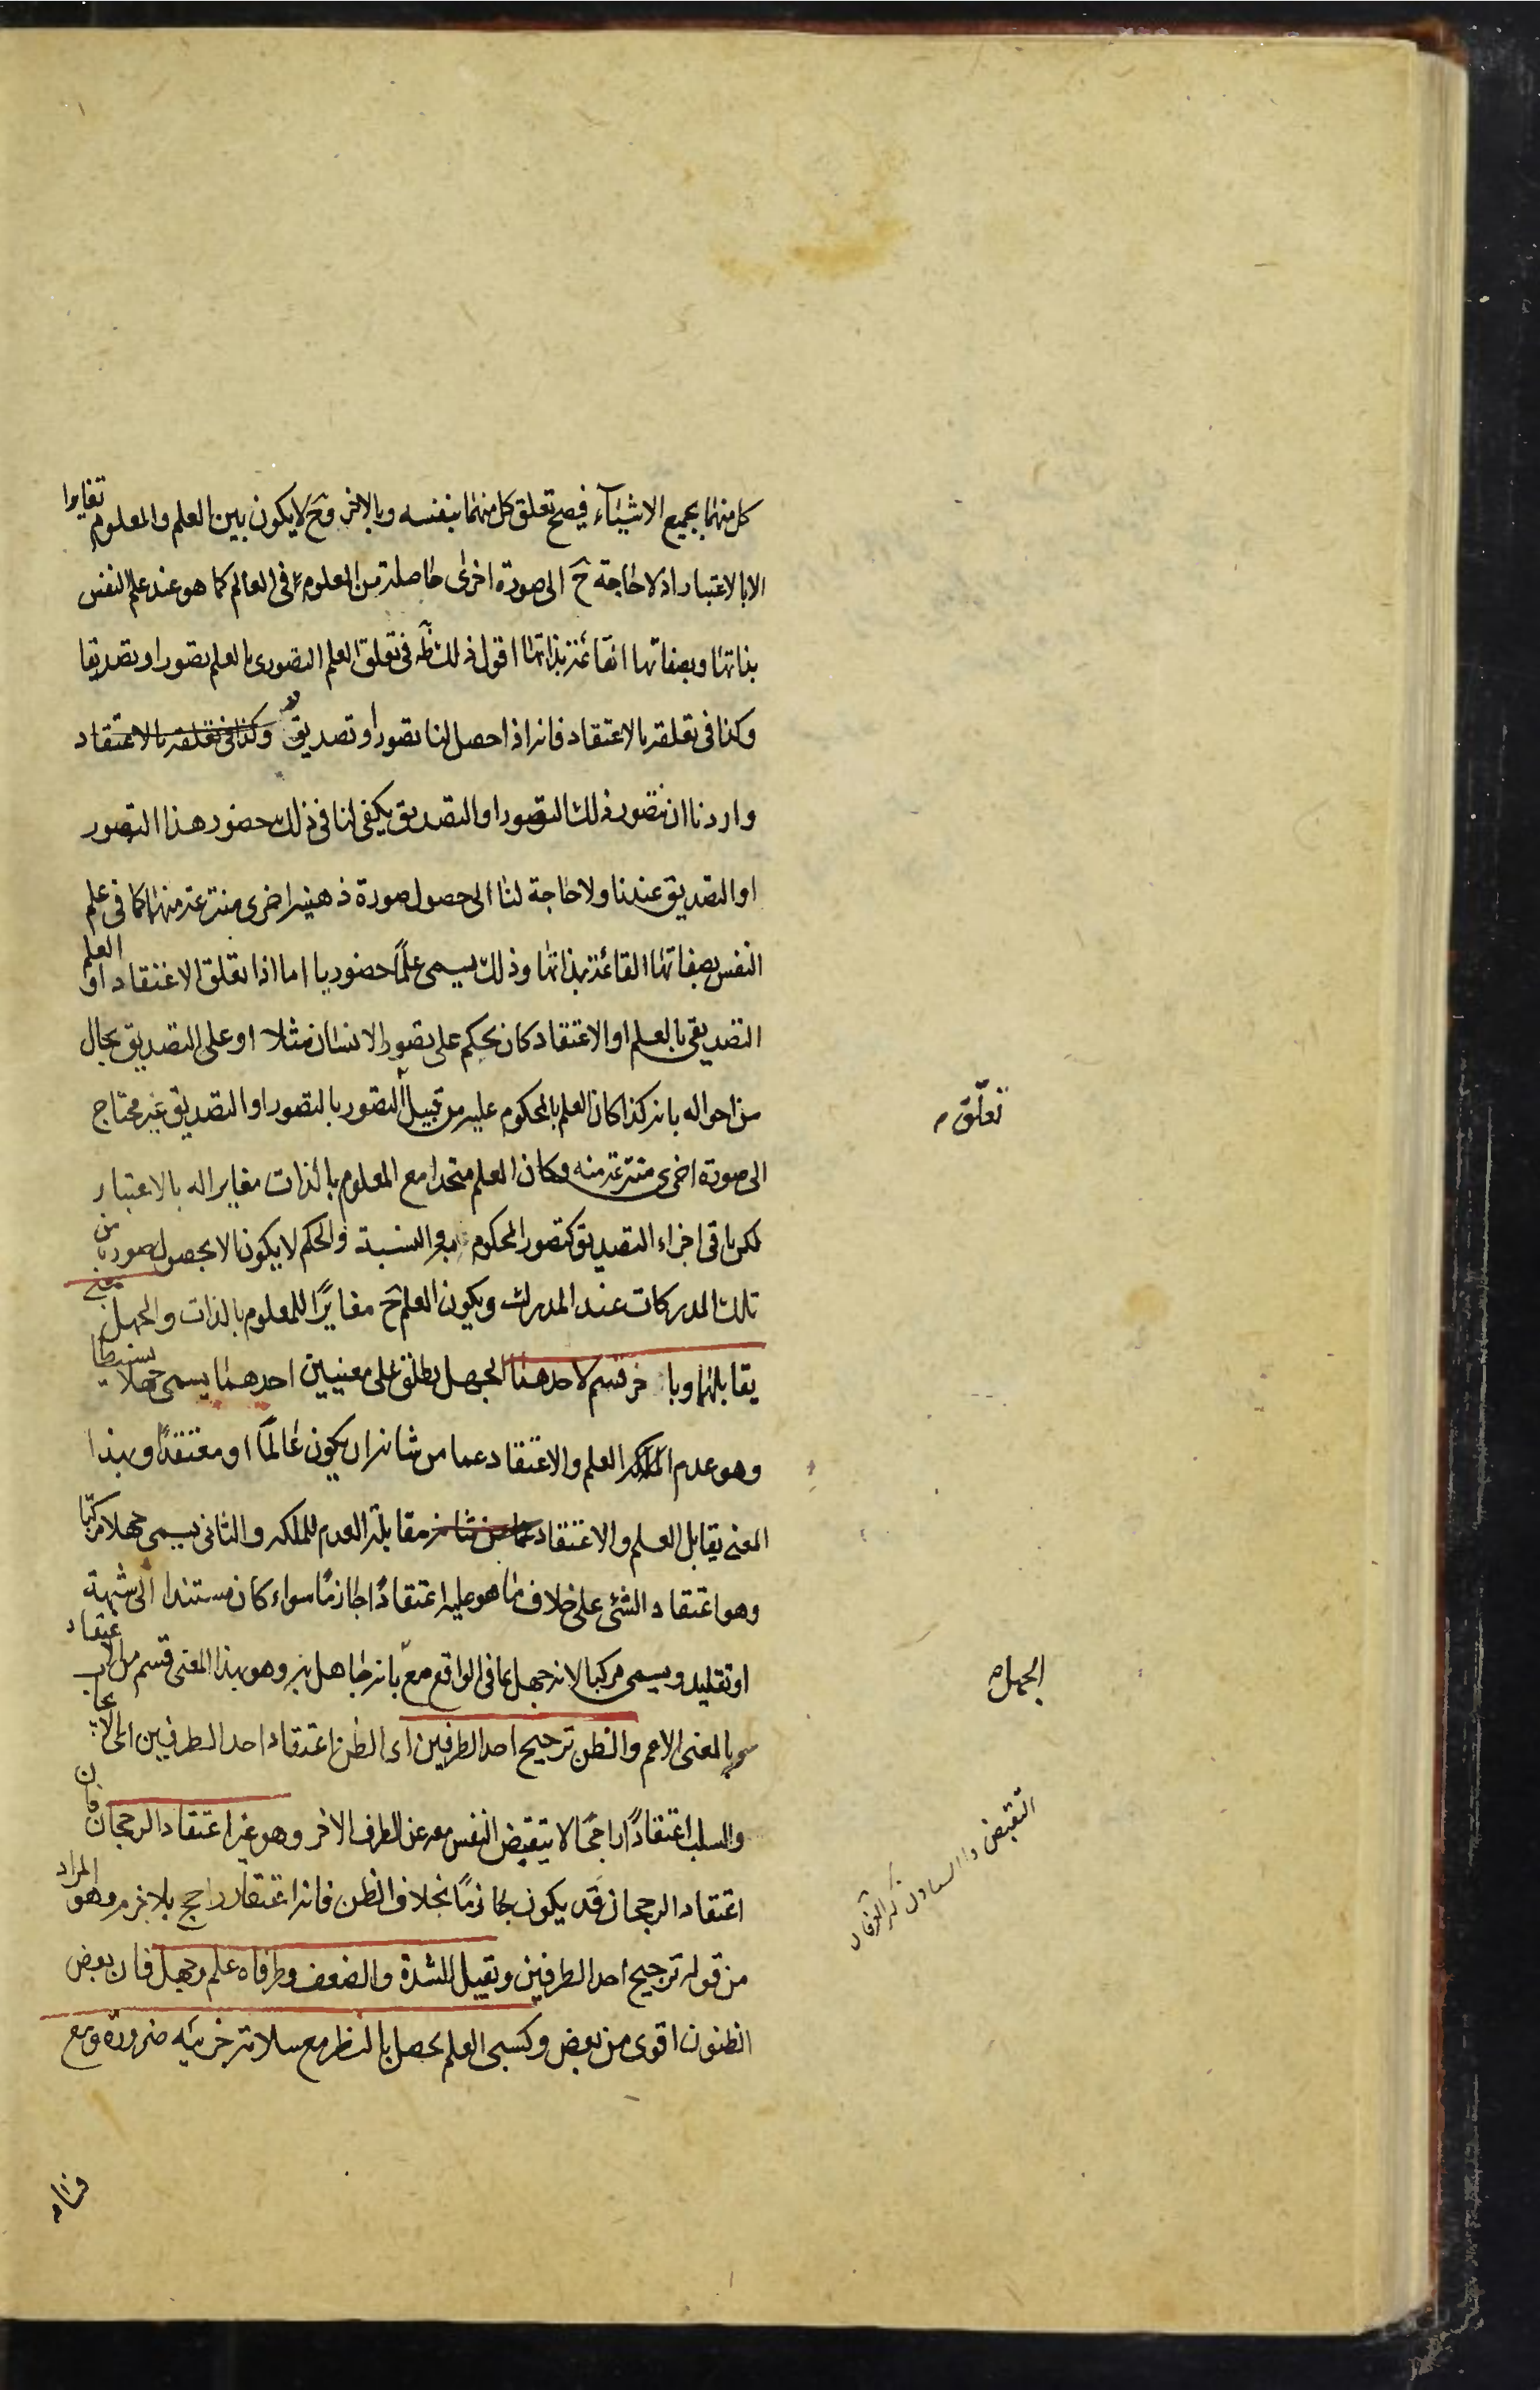 كل منهما بجميع الاشياء فيصح تعلق كل منهما بنفسه وبالاخر وح لا يكون بين العلم والمعلوم تغايرا
الا بالاعتبار اذ لا حاجة ح الى صورة اخرى حاصلة من المعلوم فى العالم كما هو عند علم النفس
بذاتها وبصفاتها القائمة بذاتها اقول ذلك ظ فى تعلق العلم التصورى بالعلم تصورا وتصديقا
وكذا فى تعلقه بالاعتقاد فانه اذا حصل لنا تصور او تصديق وكذا فى تعلقه بالاعتقاد
واردنا ان نتصور ذلك التصور او التصديق يكفى لنا فى ذلك حضور هذا التصور
او التصديق عندنا ولا حاجة لنا الى حصول صورة ذهنية اخرى منتزعة منهما كما فى علم
النفس بصفاتها القائمة بذاتها وذلك يسمى علمًا حضوريا اما اذا تعلق الاعتقاد او العلم
التصديقى بالعلم او الاعتقاد كان يحكم على تصور الانسان مثلا او على التصديق بحال
من احواله بانه كذا كان العلم بالمحكوم عليه من قبيل التصور بالتصور او التصديق غير محتاج
تعلّق
الى صورة اخرى منتزعة منه وكان العلم متحدا مع المعلوم بالذات مغايرا له بالاعتبار
لكن باقى اجزاء التصديق كتصور المحكوم به والنسبة والحكم لا يكون الا بحصول صور من
تلك المدركات عند المدرك ويكون العلم ح مغايرًا للمعلوم بالذات والجهل بمعنى
يقابلهما وباخر قسم لاحدهما الجهل يطلق على معنيين احدهما يسمى جهلا بسيطا
وهو عدم الملكه العلم والاعتقاد عما من شانه ان يكون عالمًا او معتقدًا وبهذا
المعنى يقابل العلم والاعتقاد عما من شانه مقابلة العدم للملكه والثانى يسمى جهلا مركبا
وهو اعتقاد الشئ على خلاف ما هو عليه اعتقادًا جازمًا سواء كان مستندا الى شبهة
او تقليد ويسمى مركبا لانه جهل بما فى الواقع مع بانه جاهل به وهو بهذا المعنى قسم من الاعتقاد
الجهل
بالمعنى الاعم والظن ترجيح احد الطرفين اى الظن اعتقاد احد الطرفين اى الايجاب
والسلب اعتقادًا راجحًا لا يتقبض النفس معه عن الطرف الاخر وهو غير اعتقاد الرجحان فان
اعتقاد الرجحان قد يكون جازمًا بخلاف الظن فانه اعتقاد راجح بلا جزم وهو المراد
من قوله ترجيح احد الطرفين ويقبل الشدة والضعف وطرفاه علم وجهل فان بعض
الظنون اقوى من بعض وكسبى العلم يحصل بالنظر مع سلامة جزئيه ضرورة ومع